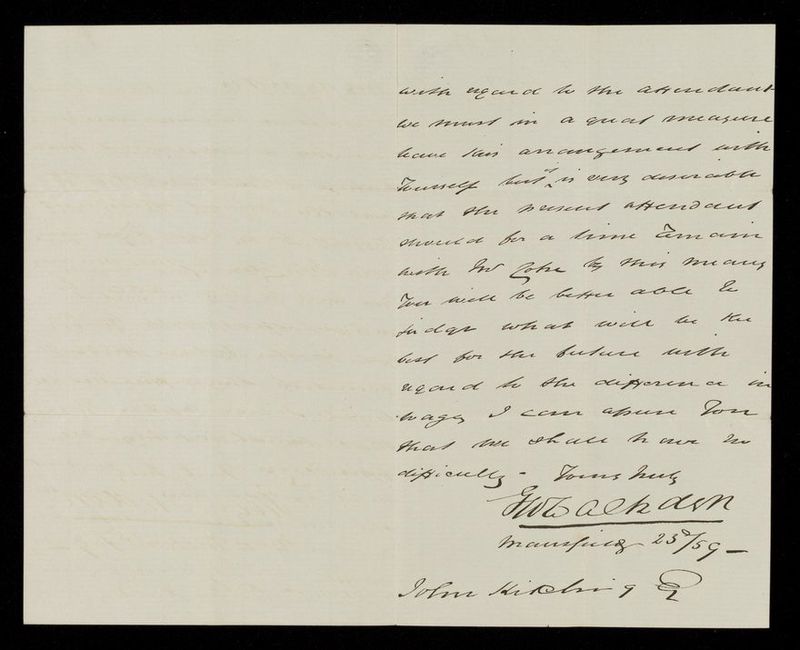 with regard to the attendant
we must in a great measure
leave this arrangement with
Yourself but it is very desirable
that the present attendant
should for a time remain
with Mr Coke by this means
You will be better able to
judge what will be the
best for the future with
regard to the difference in
wages I can assure You
that we shall have no
difficulty - Yours truly
Mansfield 23/59 -
John Kitching Esq